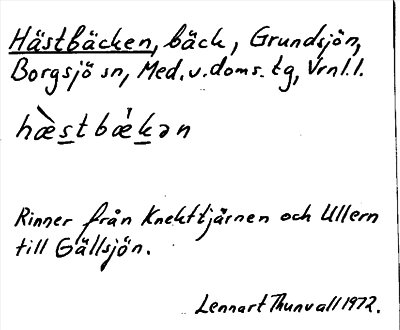 Hästbäcken, bäck, Grundsjön,
Borgsjö sn, Med.v.doms. tg, Vrnl.l.
hæ̀stbæ̍kən
Rinner från Knekttjärnen och Ullern
till Gällsjön.
Lennart Thunvall 1972.